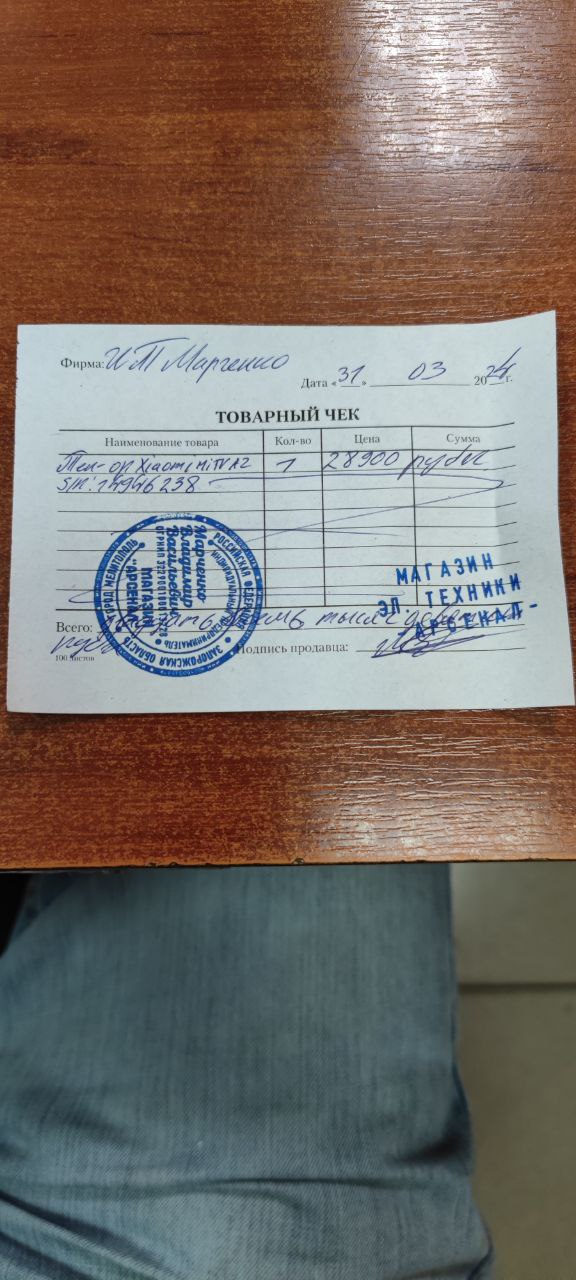 Фирма: ИП Марченко
Дата «31» 03 2024 г.
ТОВАРНЫЙ ЧЕК
Наименование товара Кол-во Цена Сумма
Тел-ор Xiaomi Mi TV A2 1 28900 рублей
S/N: 14946238
РОССИЙСКАЯ ФЕДЕРАЦИЯ
ЗАПОРОЖСКАЯ ОБЛАСТЬ
ГОРОД МЕЛИТОПОЛЬ
ИНДИВИДУАЛЬНЫЙ ПРЕДПРИНИМАТЕЛЬ
Марченко
Владимир
Васильевич
МАГАЗИН
МАГАЗИН
ЭЛ. ТЕХНИКИ
"АРСЕНАЛ"
Всего: двадцать восемь тысяч
100 листов
Подпись продавца: